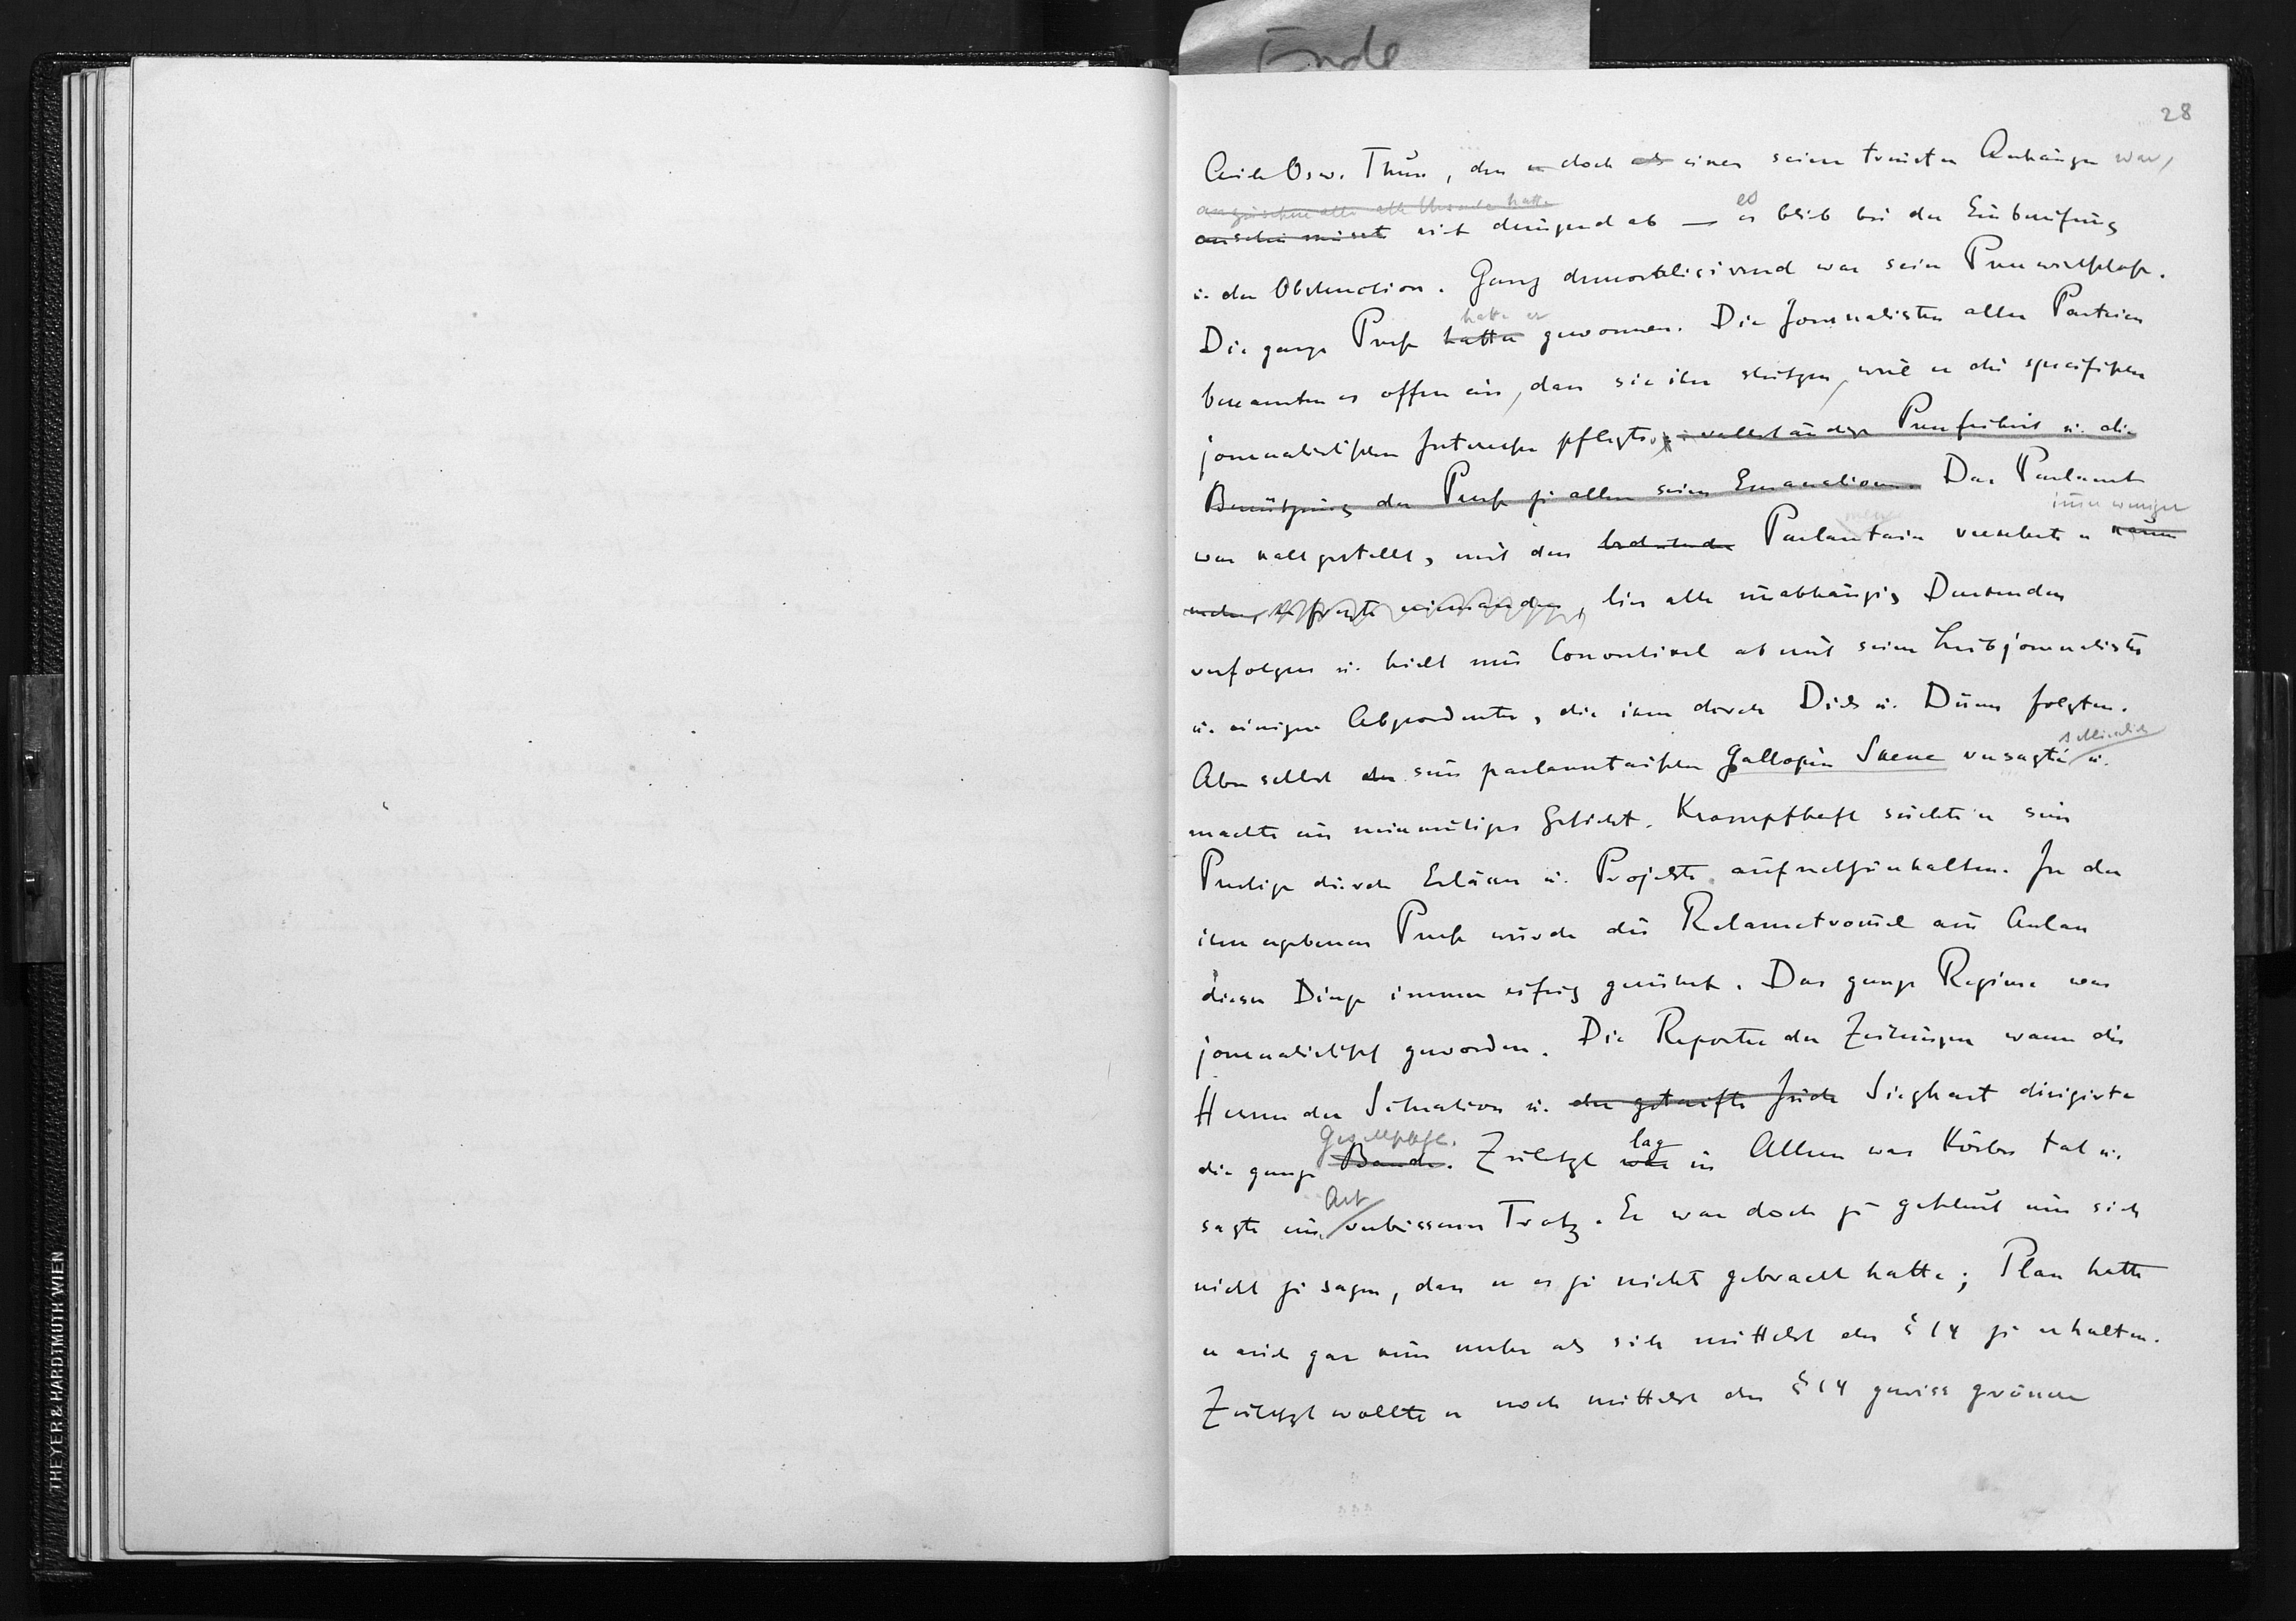 Ende
28
Auch Osw. Thun, der er doch als einer seiner treuesten Anhänger war,
anzusehen alle Ursache hatte
ansehen musste riet dringend ab — es blieb bei der Einberufung
u. der Obstruction. Ganz demoralisirend war seine Presswirthschaft.
Die ganze Presse hatte er gewonnen. Die Journalisten aller Parteien
bekannten es offen ein, dass sie ihn stützen, weil er die specifischen
journalistischen Interessen pflegte, vollständige Pressfreiheit u. die
Benützung der Presse zu allen seinen Emanationen. Das Parlament
war kaltgestellt, mit den bedeutenden Parlamentariern verkehrte er immer weniger kaum
mehr, er fragte niemanden, liess alle unabhängig Denkenden
verfolgen u. hielt nur Conventikel ab mit seinen Leibjournalisten
u. einigen Abgeordneten, die ihm durch Dick u. Dünn folgten.
Aber selbst der sein parlamentarischer Gallopin Skene versagte schliesslich u.
machte ein missmutiges Gesicht. Krampfhaft suchte er sein
Prestige durch Erlässe u. Projekte aufrechtzuhalten. In der
ihm ergebenen Presse wurde die Reklametrommel aus Anlass
dieser Dinge immer eifrig gerührt. Das ganze Regime war
journalistisch geworden. Die Reporter der Zeitungen waren die
Herren der Situation u. der getaufte Jude Sieghart dirigirte
die ganze Bande Gesellschaft. Zuletzt war lag in Allem was Körber tat u.
sagte eine Art verbissener Trotz. Er war doch zu gescheut um sich
nicht zu sagen, dass er es zu nichts gebracht hatte; Plan hatte
er auch gar keinen mehr als sich mittelst des § 14 zu erhalten.
Zuletzt wollte er noch mittelst des § 14 gewiss grössere
THEYER & HARDTMUTH WIEN